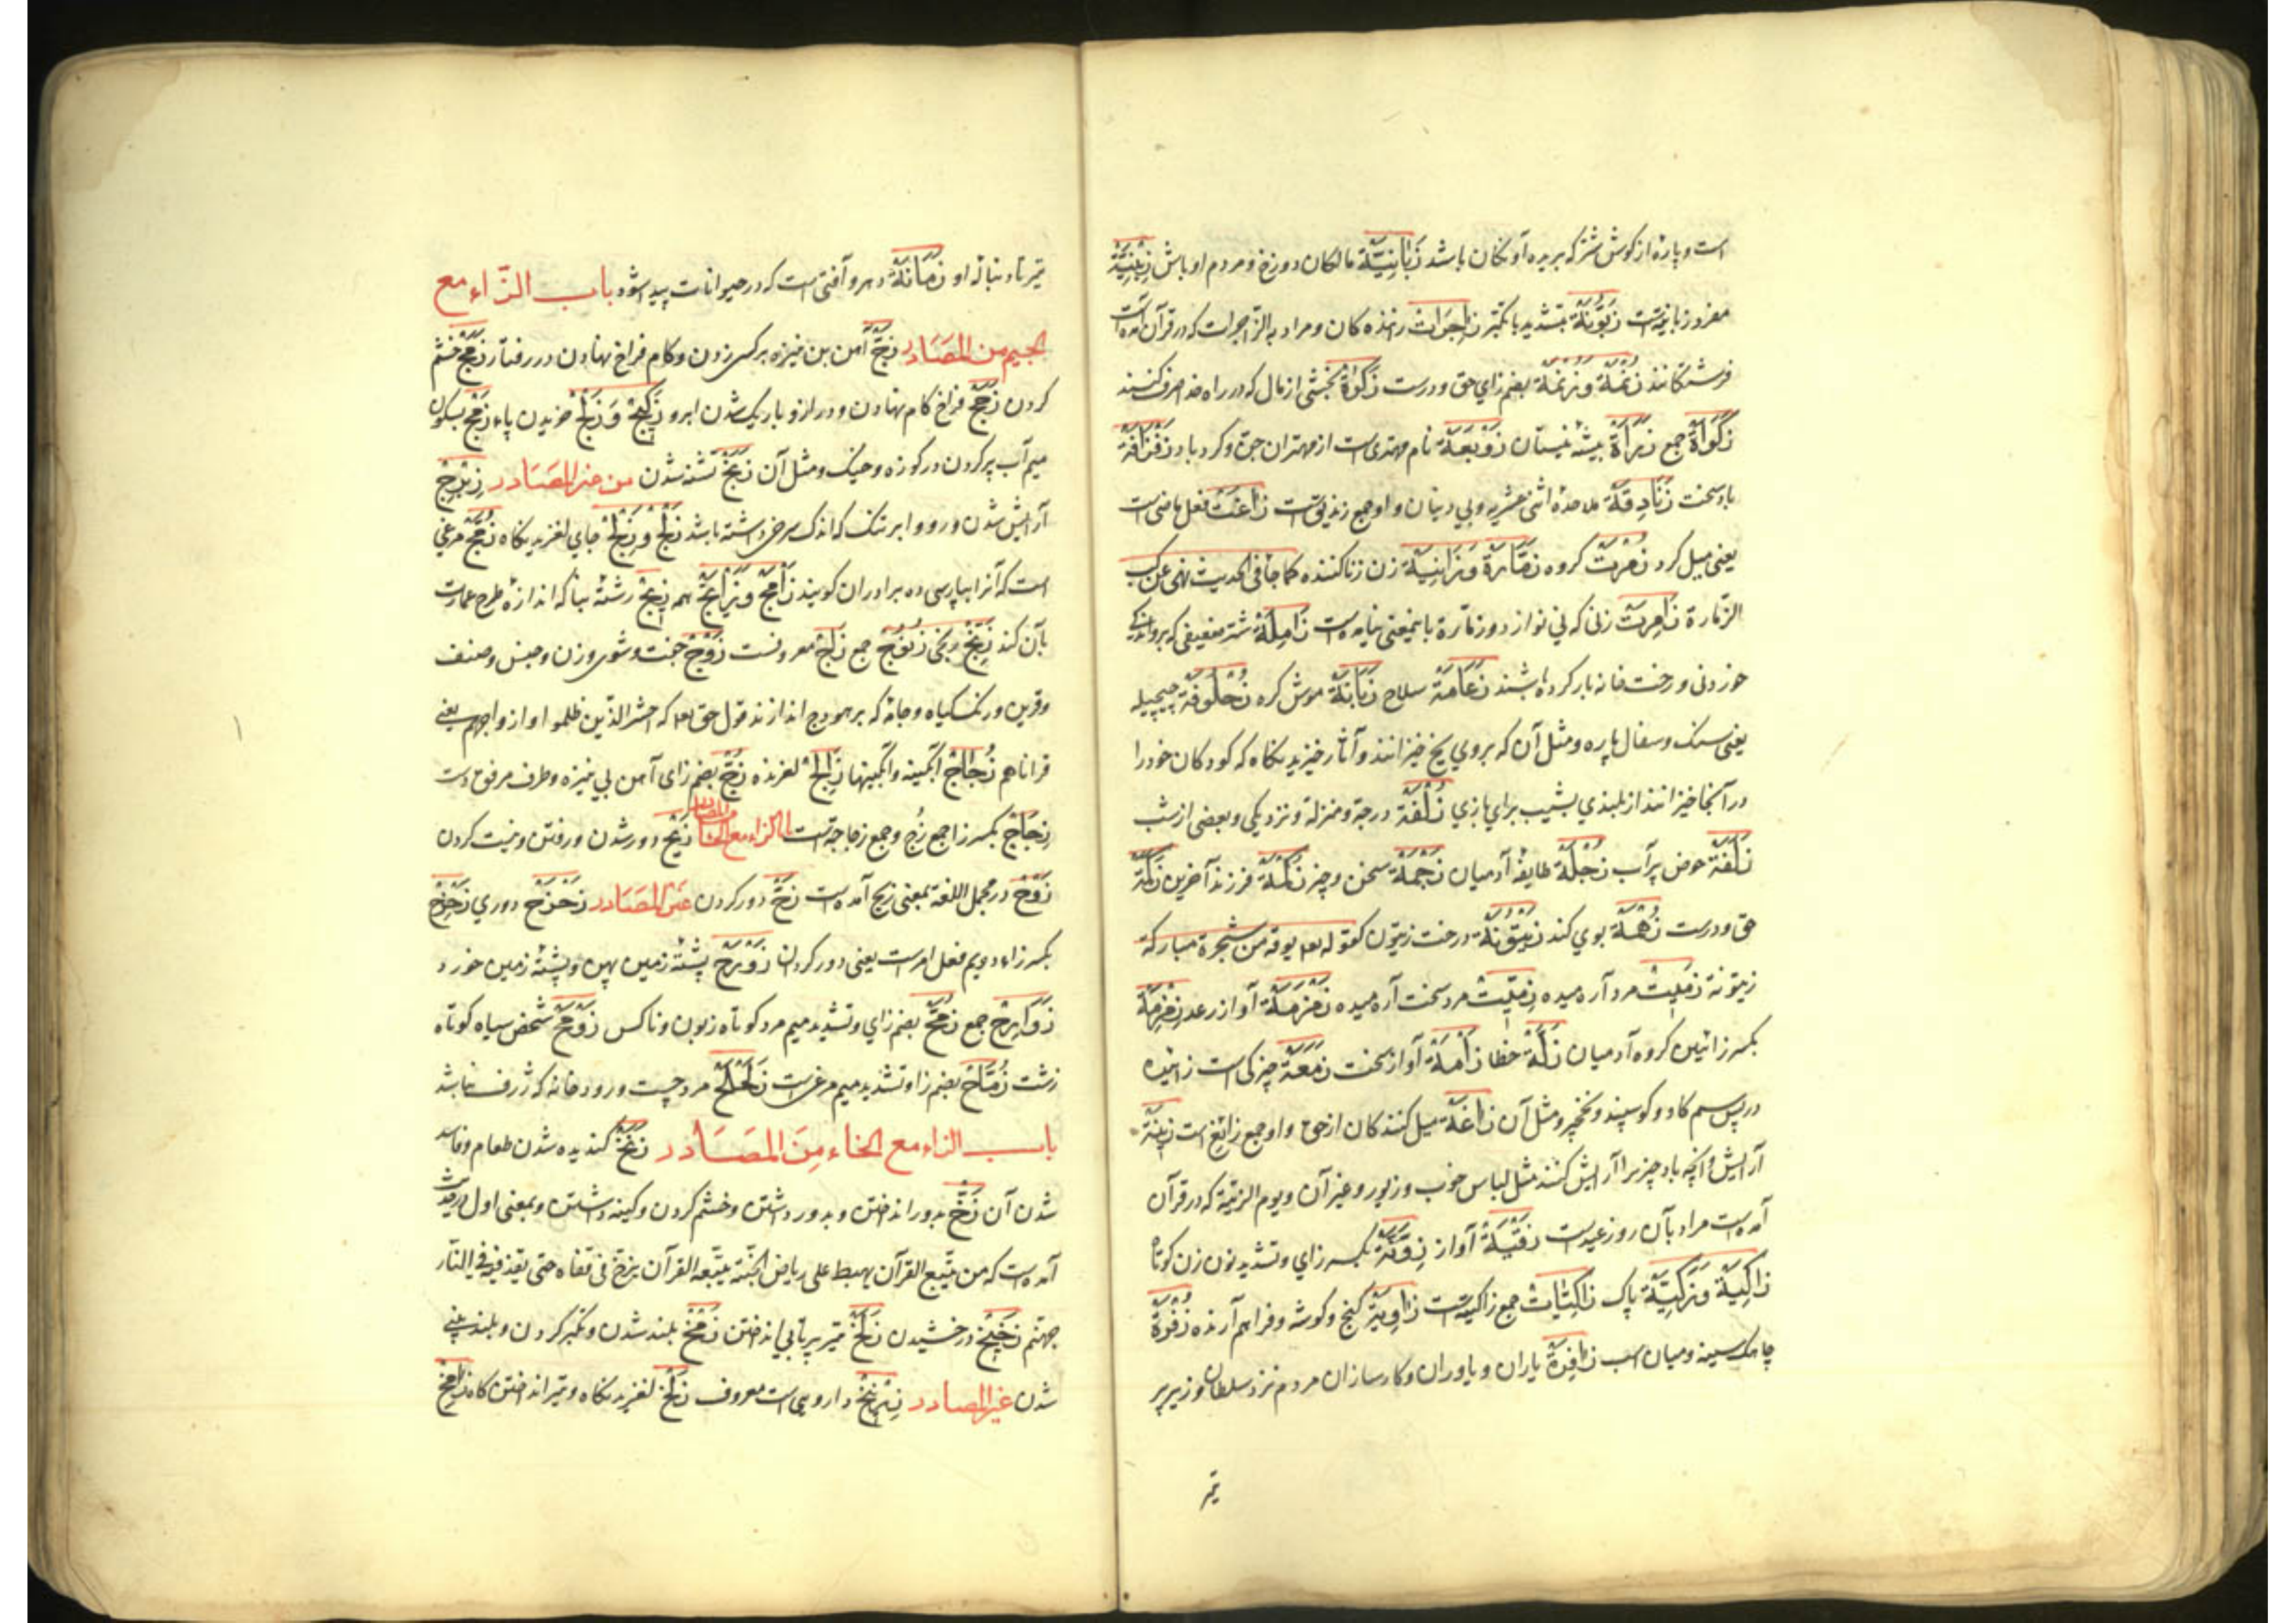 است و پاره از کوش شتر که بریده آونکان باشد زَبَانِیَّة مالکان دوزخ و مردم اوباش زِبْنِیَّة
مفرد زبانیة است زَبُّونَة بتشدید با تکبر زاجِرَات راننده کان و مراد به الزّاجرات که در قرآن آمده است
فرشتکانند زُنمَة وَ زُنَمَة بضم زای حق و درست زَکوَاةْ بخشی از مال که در راه خدا صرف کنند
زَکَوَاةْ جمع زَرَاةْ بیشه نیستان زَوْبَعَة نام مهتری است از مهتران جن و کرد باد زَفْزَافَة
باد سخت زَنَادِقَة ملاحده اثنی عشریه و بی دینان و او جمع زندیق است زَاغَتْ فعل ماضی است
یعنی میل کرد زُمْرَتْ کروه زَمَّارَة وَ زَانِیَة زن زنا کننده کما جآ فی الحدیث نهی عن کسب
الزّمارة زَامِرَتْ زنی که نی نوازد و زمّارة باینمعنی نیامده است زَامِلَة شتر ضعیفی که برو اندکی
خوردنی و رخت خانه بار کرده باشند زَعَامَة سلاح زَبَابَة موش کره زُحْلُوفَة چیچیله
یعنی سنک و سفال پاره و مثل آن که بر روی یخ خیزانند و آثار خیزیدنکاه که کودکان خود را
در آنجا خیزانند از بلندی بشیب برای بازی زُلْفَة درجة و منزلة و نزدیکی و بعضی از شب
زَلَفَة حوض پر آب زُجْلَة طایفۀ آدمیان زَجْمَة سخن و چیز زُکْمَة فرزند آخرین زُلَمَة
حق و درست زُهْمَة بوی کند زَیْتُونَة درخت زیتون کقوله تعه یوقد من شجرة مبارکة
زیتونة زَمِیْتْ مرد آرمیده زِمِّیْتْ مرد سخت آرمیده زَمْزَمَة آواز رعد زِمْزِمَة
بکسر زائین کروه آدمیان زَلَّة خطا زَأْمَة آواز سخت زَمَعَة چیزکی است زائیده
در پس سم کاو و کوسپند و نخچیر و مثل آن زَاغَة میل کنندکان از حق و او جمع زائغ است زِیْنَة
آرایش و آنچه باو چیز را آرایش کنند مثل لباس خوب و زیور و غیر آن و یوم الزینة که در قرآن
آمده است مراد بآن روز عیدست زَقْیَة آواز زِوَنَّة بکسر زای و تشدید نون زن کوتاه
زَاکِیَة وَ زَکِیَّة پاک زَاکِیَاتْ جمع زاکیة است زَاوِیَة کنج و کوشه و فراهم آرنده زُفْرَةْ
چامک سینه و میان اسب زَافِرَةْ یاران و یاوران و کارسازان مردم نزد سلطان و زیر پر
تیر
تیر تا دنباله او زَمَانَة دهر و آفتی است که در حیوانات پیدا شود باب الزّاء مع
الجیم من المَصَادر زَجّ آهن بن نیزه بر کسی زدن و کام فراخ نهادن در رفتار زَمَجْ خشم
کردن زَجَجْ فراخ کام نهادن و دراز و باریک شدن ابرو زَلِیْجْ وَ زَلَجْ خزیدن پاء زَمْجْ بسکون
میم آب پر کردن در کوزه و خیک و مثل آن زَنَجْ تشنه شدن من غیر المَصَادر زِبْرِجْ
آرایش شدن و رو و ابر تنک که اندک سرخی داشته باشد زَلْجْ وَ زَلِجْ جای لغزیدنکاه زُمَّجْ مرغی
است که آنرا بپارسی ده برادران کویند زَأْمَجْ وَ زَأْبَجْ همه زِیْجْ رشتۀ بنا که اندازۀ طرح عمارت
بآن کند زِنْجْ زنکی زُنُوْجْ جمع زَاجْ معروفست زَوْجْ جفت و شوی و زن و جنس و صنف
و قرین و رنک کیاه و جامۀ که بر هودج اندازند قول حق تعه که احشر الذین ظلموا و ازواجهم یعنی
قراناهم زُجَاجْ آبکینه و آبکینها زَالِجْ لغزنده زُجْ بضم زای آهن بن نیزه و طرف مرفق دست
زِجَاجْ بکسر زا جمع زُج و جمع زجاجة است الزاء مع الحاء من المصادر زَیْحْ دور شدن و رفتن و نیست کردن
زَوْحْ در مجمل اللغة بمعنی زیح آمده است زَحّ دور کردن غیر المَصَادر زَحْزَحْ دوری زَحْزِحْ
بکسر زاء دویم فعل امر است یعنی دور کردان زَرْوَحْ پشتۀ زمین پهن و پشتۀ زمین خورد
زَرَاوِحْ جمع زُمَّحْ بضم زای و تشدید میم مرد کوتاه زبون و ناکس زَوْمَحْ شخص سیاه کوتاه
زشت زُمَّاحْ بضم زا و تشدید میم مرغی است زَلَحْلَحْ مرد چست و رودخانه که ژرف نباشد
باب الزاء مع الخاء مِنَ المَصَادر زَنَخْ کندیده شدن طعام و فاسد
شدن آن زَخّ بدور انداختن و بدور داشتن و خشم کردن و کینه داشتن و بمعنی اول در حدیث
آمده است که من یتّبع القرآن یهبط علی ریاض الجنّة و من یتّبعه القرآن یزخّ فی قفاه حتی یقذفه فی النّار
جهنم زَخِیْخْ درخشیدن زَلْخْ تیر پرتابی انداختن زَمْخْ بلند شدن و تکبر کردن و بلند بینی
شدن غیر المصادر زِرْنِیْخْ داروی است معروف زَلْخْ لغزیدنکاه و تیر انداختن کاه زَامِخْ